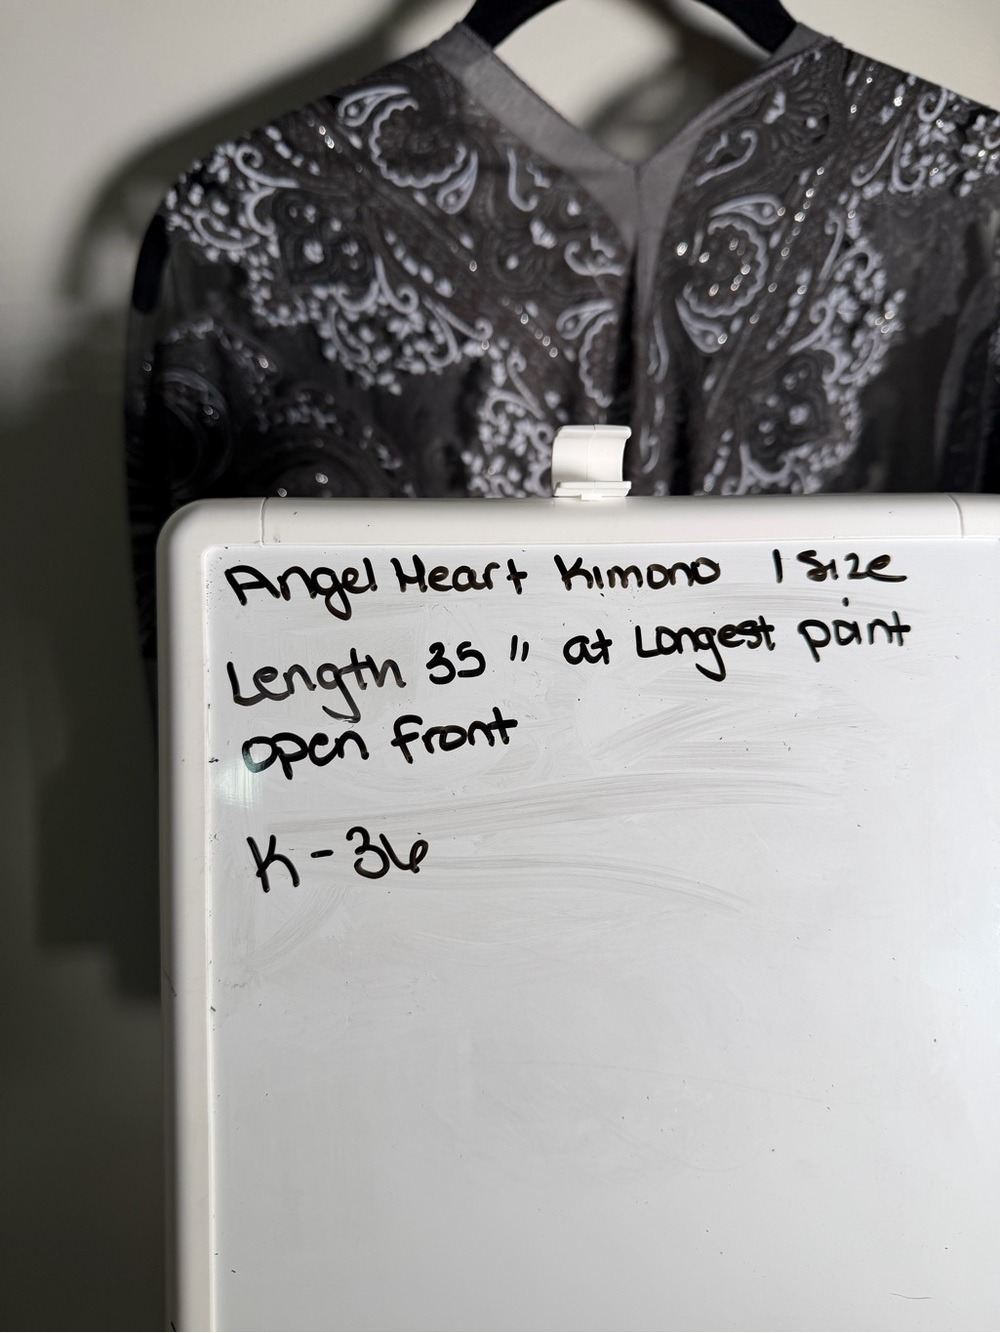 Angel Heart Kimono 1 Size
Length 35" at Longest point
open front
K-36